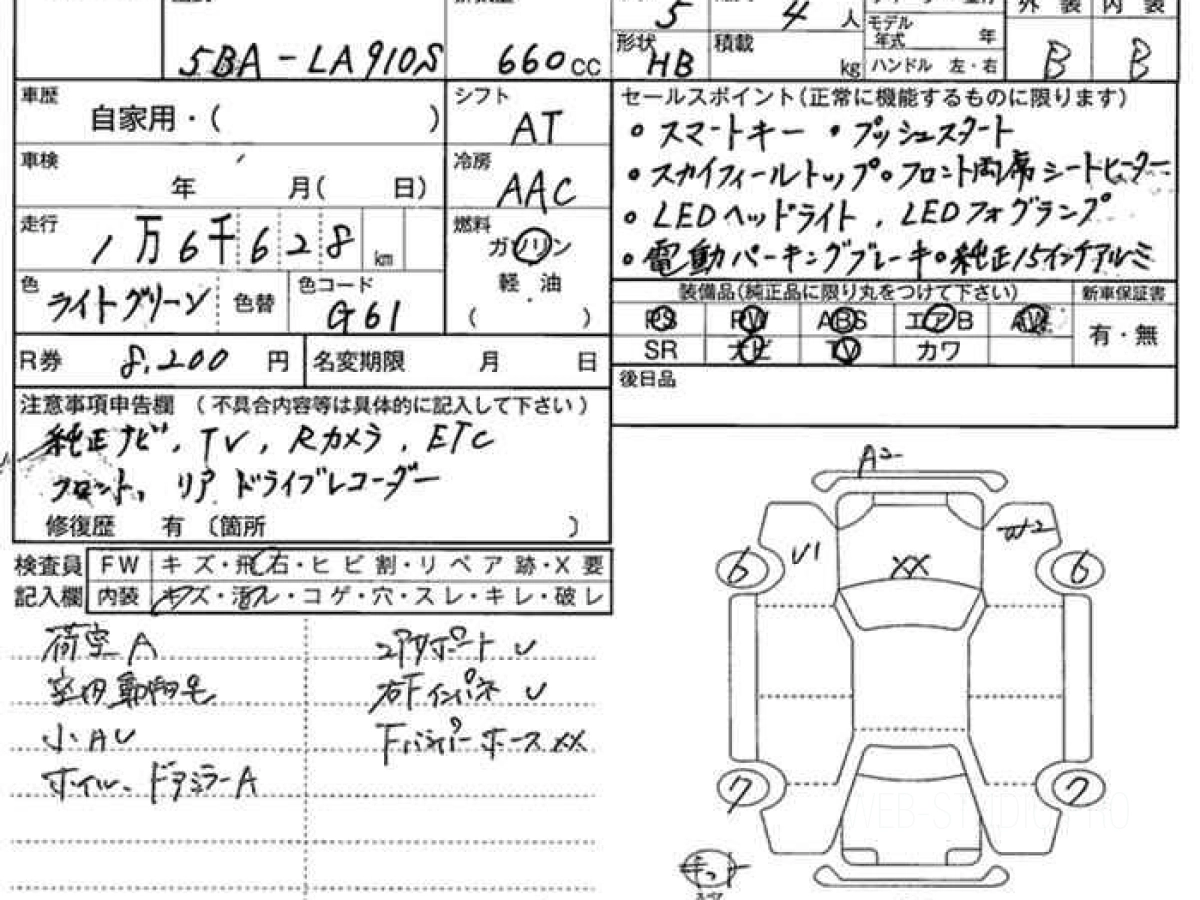 5 4 人 外 装 内 装
モデル年式 年
5BA-LA910S 660cc 形状 HB 積載 kg ハンドル 左・右 B B
車歴 自家用・( ) シフト AT
セールスポイント(正常に機能するものに限ります)
・スマートキー ・プッシュスタート
車検 年 月( 日) 冷房 AAC
・スカイフィールトップ・フロント両席シートヒーター
走行 1万6千628km 燃料 ガソリン
・LEDヘッドライト、LEDフォグランプ
・電動パーキングブレーキ・純正15インチアルミ
色 ライトグリーン 色替 色コード G61 軽 油
( )
装備品(純正品に限り丸をつけて下さい) 新車保証書
PS PW ABS エアB AW 有・無
R券 8,200 円 名変期限 月 日
SR ナビ TV カワ
後日品
注意事項申告欄 (不具合内容等は具体的に記入して下さい)
純正ナビ、TV、Rカメラ、ETC
フロント、リア ドライブレコーダー
修復歴 有〔箇所 〕
検査員記入欄
FW キズ・飛石・ヒビ割・リペア跡・X要
内装 キズ・汚レ・コゲ・穴・スレ・キレ・破レ
荷室A コアサポートU
室内動物毛 右FインパネU
小AU FバンパーホースXX
ホイル、ドアミラーA
A2
U1 W2
XX
6 6
7 7
WEB-STUDIO.PRO